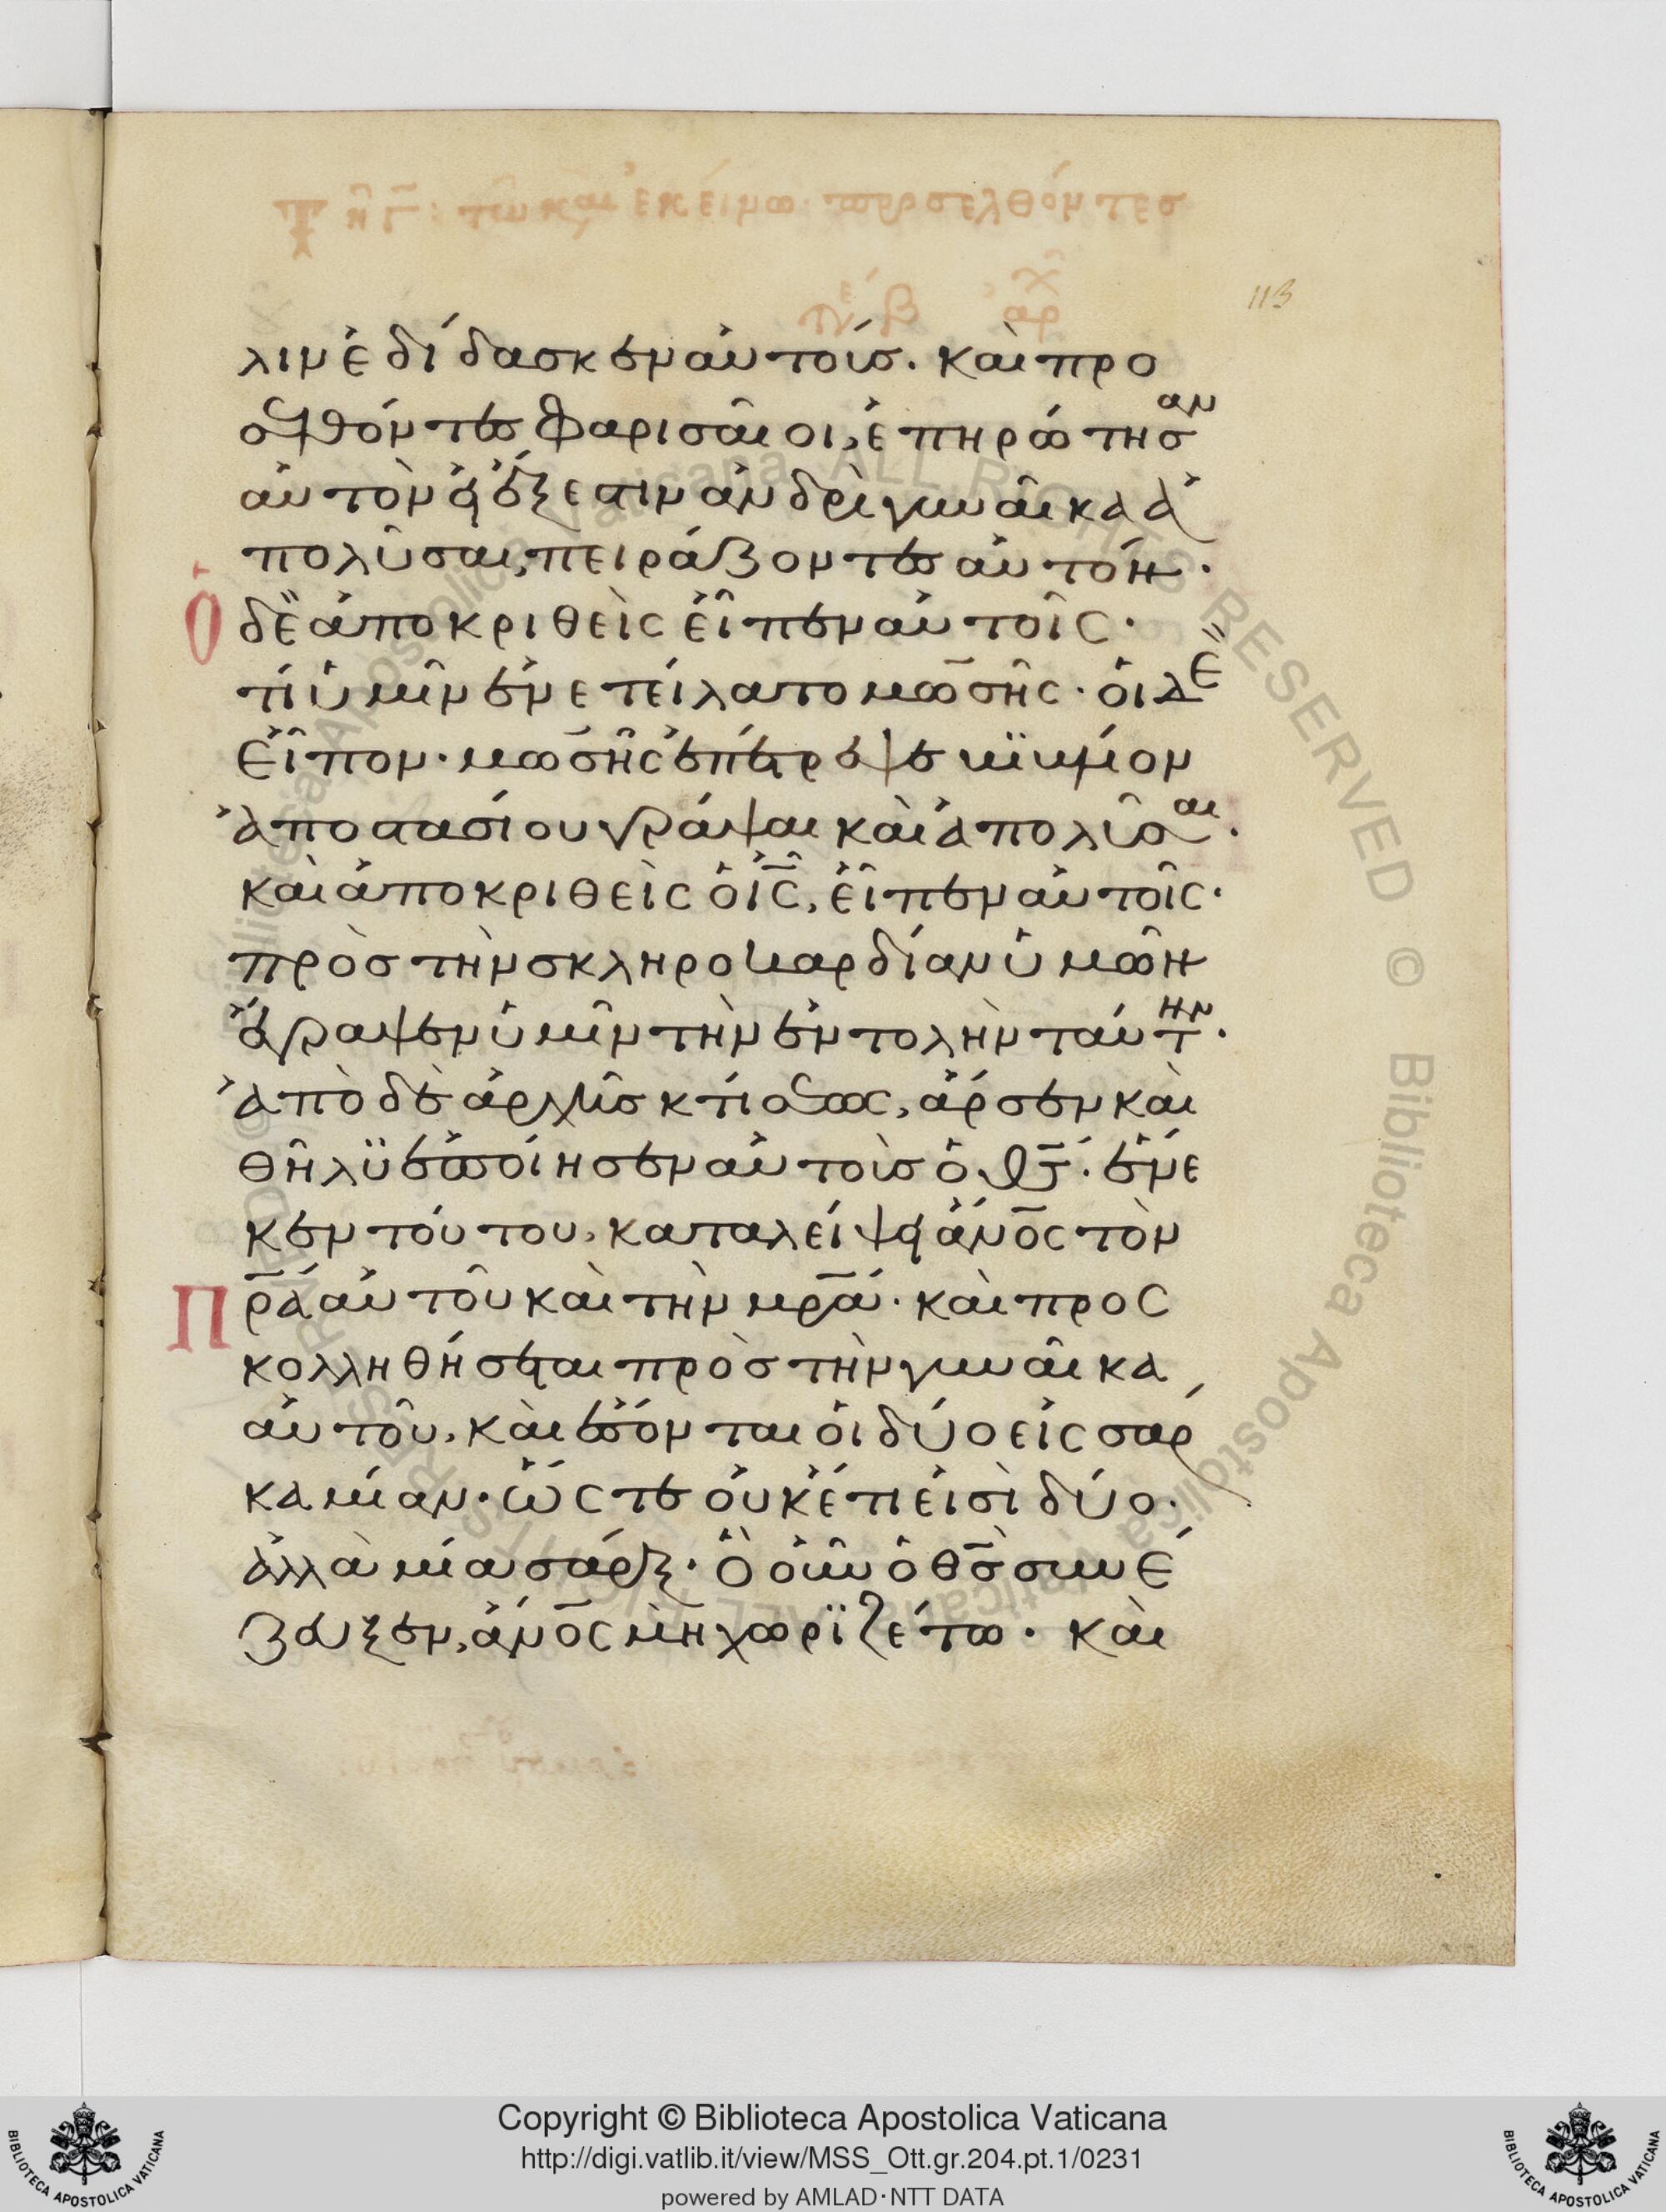 113
λιν ἐδίδασκεν αὐτούσ. καὶ προ
σελθόντεσ φαρισαῖοι, ἐπηρώτησαν
αὐτὸν εἰ ἔξεστιν ἀνδρὶ γυναῖκα ἀ
πολῦσαι, πειράζοντεσ αὐτόν.
Ὁ δὲ ἀποκριθεὶς εἶπεν αὐτοῖς.
τί ὑμῖν ἐνετείλατο μωσῆς. οἱ δὲ
εἶπον. μωσῆς ἐπέτρεψε βιβλίον
ἀποστασίου γράψαι καὶ ἀπολῦσαι.
καὶ ἀποκριθεὶς ὁ ι̅ς̅, εἶπεν αὐτοῖς.
πρὸσ τὴν σκληροκαρδίαν ὑμῶν
ἔγραψεν ὑμῖν τὴν ἐντολὴν ταύτην.
ἀπὸ δὲ ἀρχῆσ κτίσεως, ἄρσεν καὶ
θῆλϋ ἐποίησεν αὐτοὺσ ὁ θ̅σ̅. ἕνε
κεν τούτου, καταλείψει α̅ν̅ο̅ς̅ τὸν
π̅ρ̅α̅ αὐτοῦ καὶ τὴν μ̅ρ̅α̅. καὶ προς
κολληθήσεται πρὸσ τὴν γυναῖκα
αὐτοῦ, καὶ ἔσονται οἱ δύο εἰς σάρ
κα μίαν. ὥςτε οὐκέτι εἰσὶ δύο.
ἀλλὰ μία σάρξ. Ὃ οὖν ὁ θ̅σ̅ συνέ
ζευξεν, α̅ν̅ο̅ς̅ μὴ χωρϊζέτω. καὶ
Copyright © Biblioteca Apostolica Vaticana
http://digi.vatlib.it/view/MSS_Ott.gr.204.pt.1/0231
powered by AMLAD·NTT DATA
BIBLIOTECA APOSTOLICA VATICANA
BIBLIOTECA APOSTOLICA VATICANA